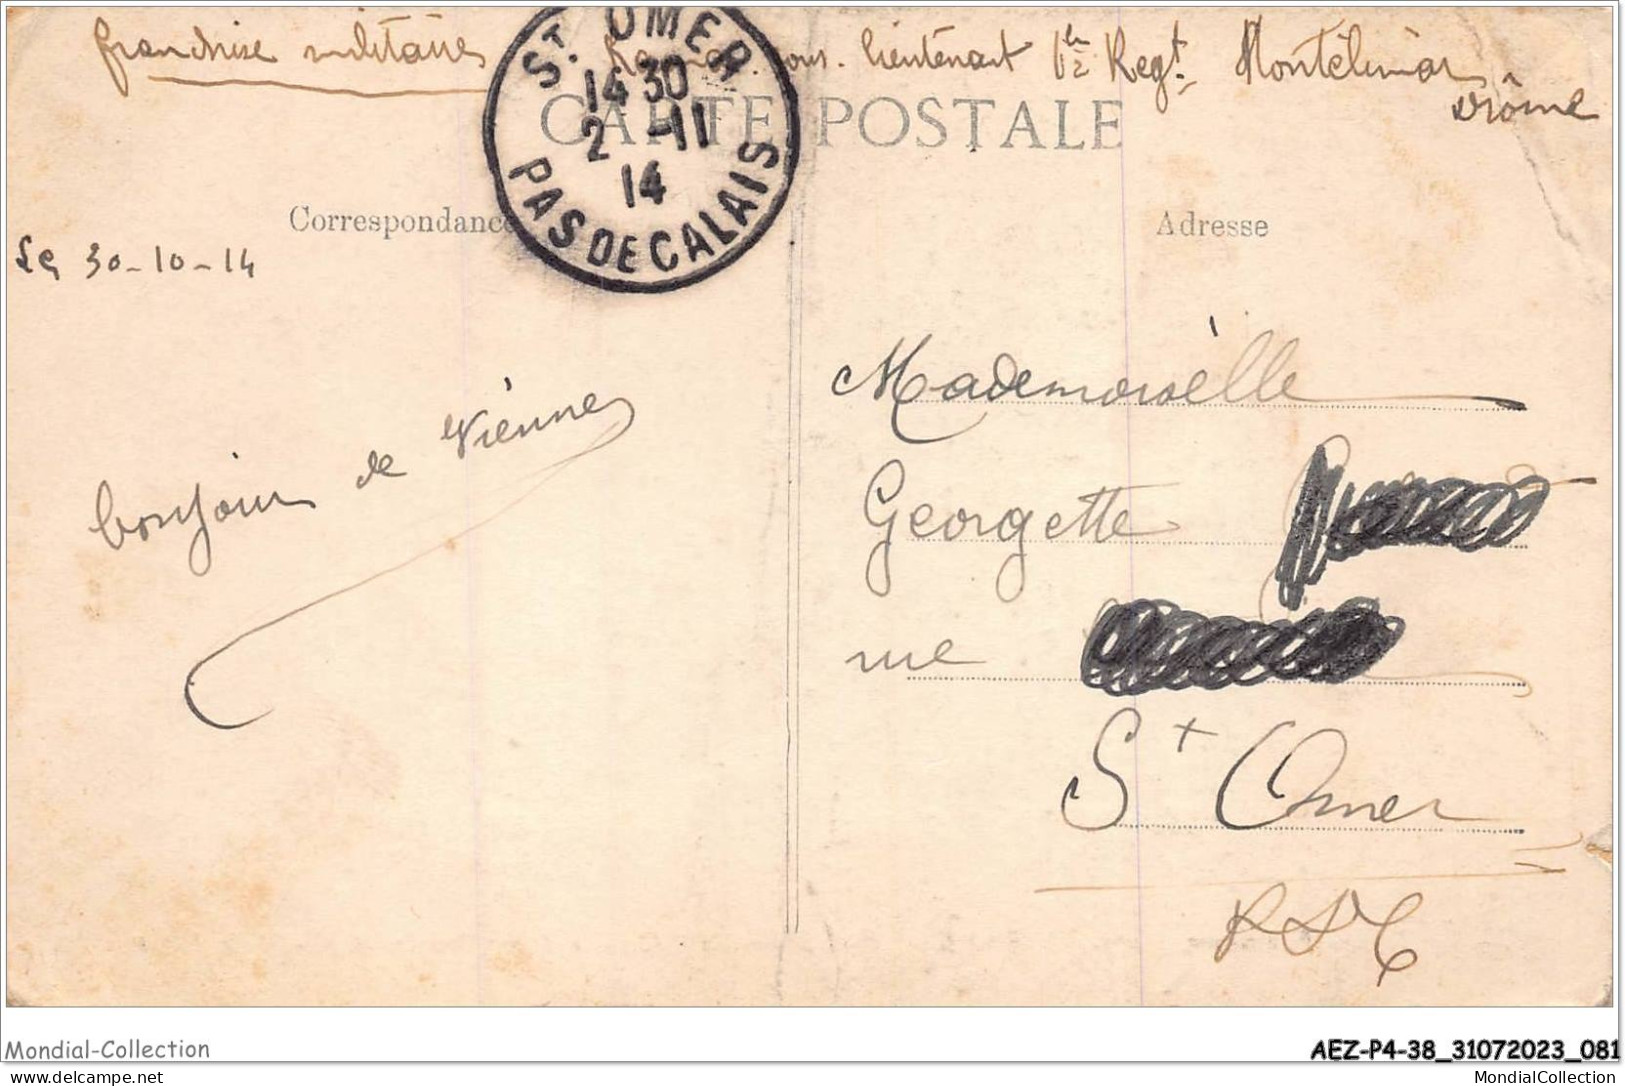 franchise militaire sous-lieutenant Regt Montélimar
Drôme
ST OMER
14 30
2 -11
14
PAS DE CALAIS
CARTE POSTALE
Correspondance
Adresse
Le 30-10-14
bonjour de Vienne
Mademoiselle
Georgette
rue
St Omer
P D C
Mondial-Collection
AEZ-P4-38_31072023_081
delcampe.net
MondialCollection